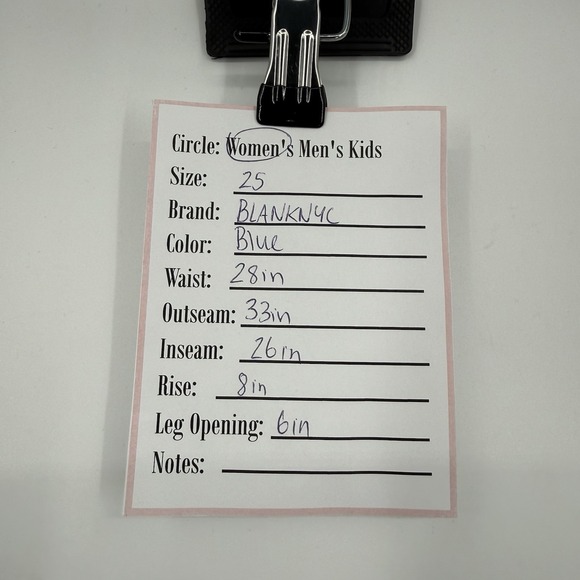 Circle: Women's Men's Kids
Size: 25
Brand: BLANKNYC
Color: Blue
Waist: 28in
Outseam: 33in
Inseam: 26in
Rise: 8in
Leg Opening: 6in
Notes: